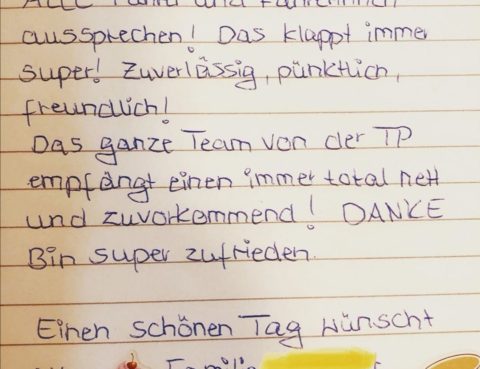 ALLE Fahrer und Fahrerinnen
aussprechen! Das klappt immer
super! Zuverlässig, pünktlich,
freundlich!
Das ganze Team von der TP
empfängt einen immer total nett
und zuvorkommend! DANKE
Bin super zufrieden.
Einen schönen Tag wünscht
Familie